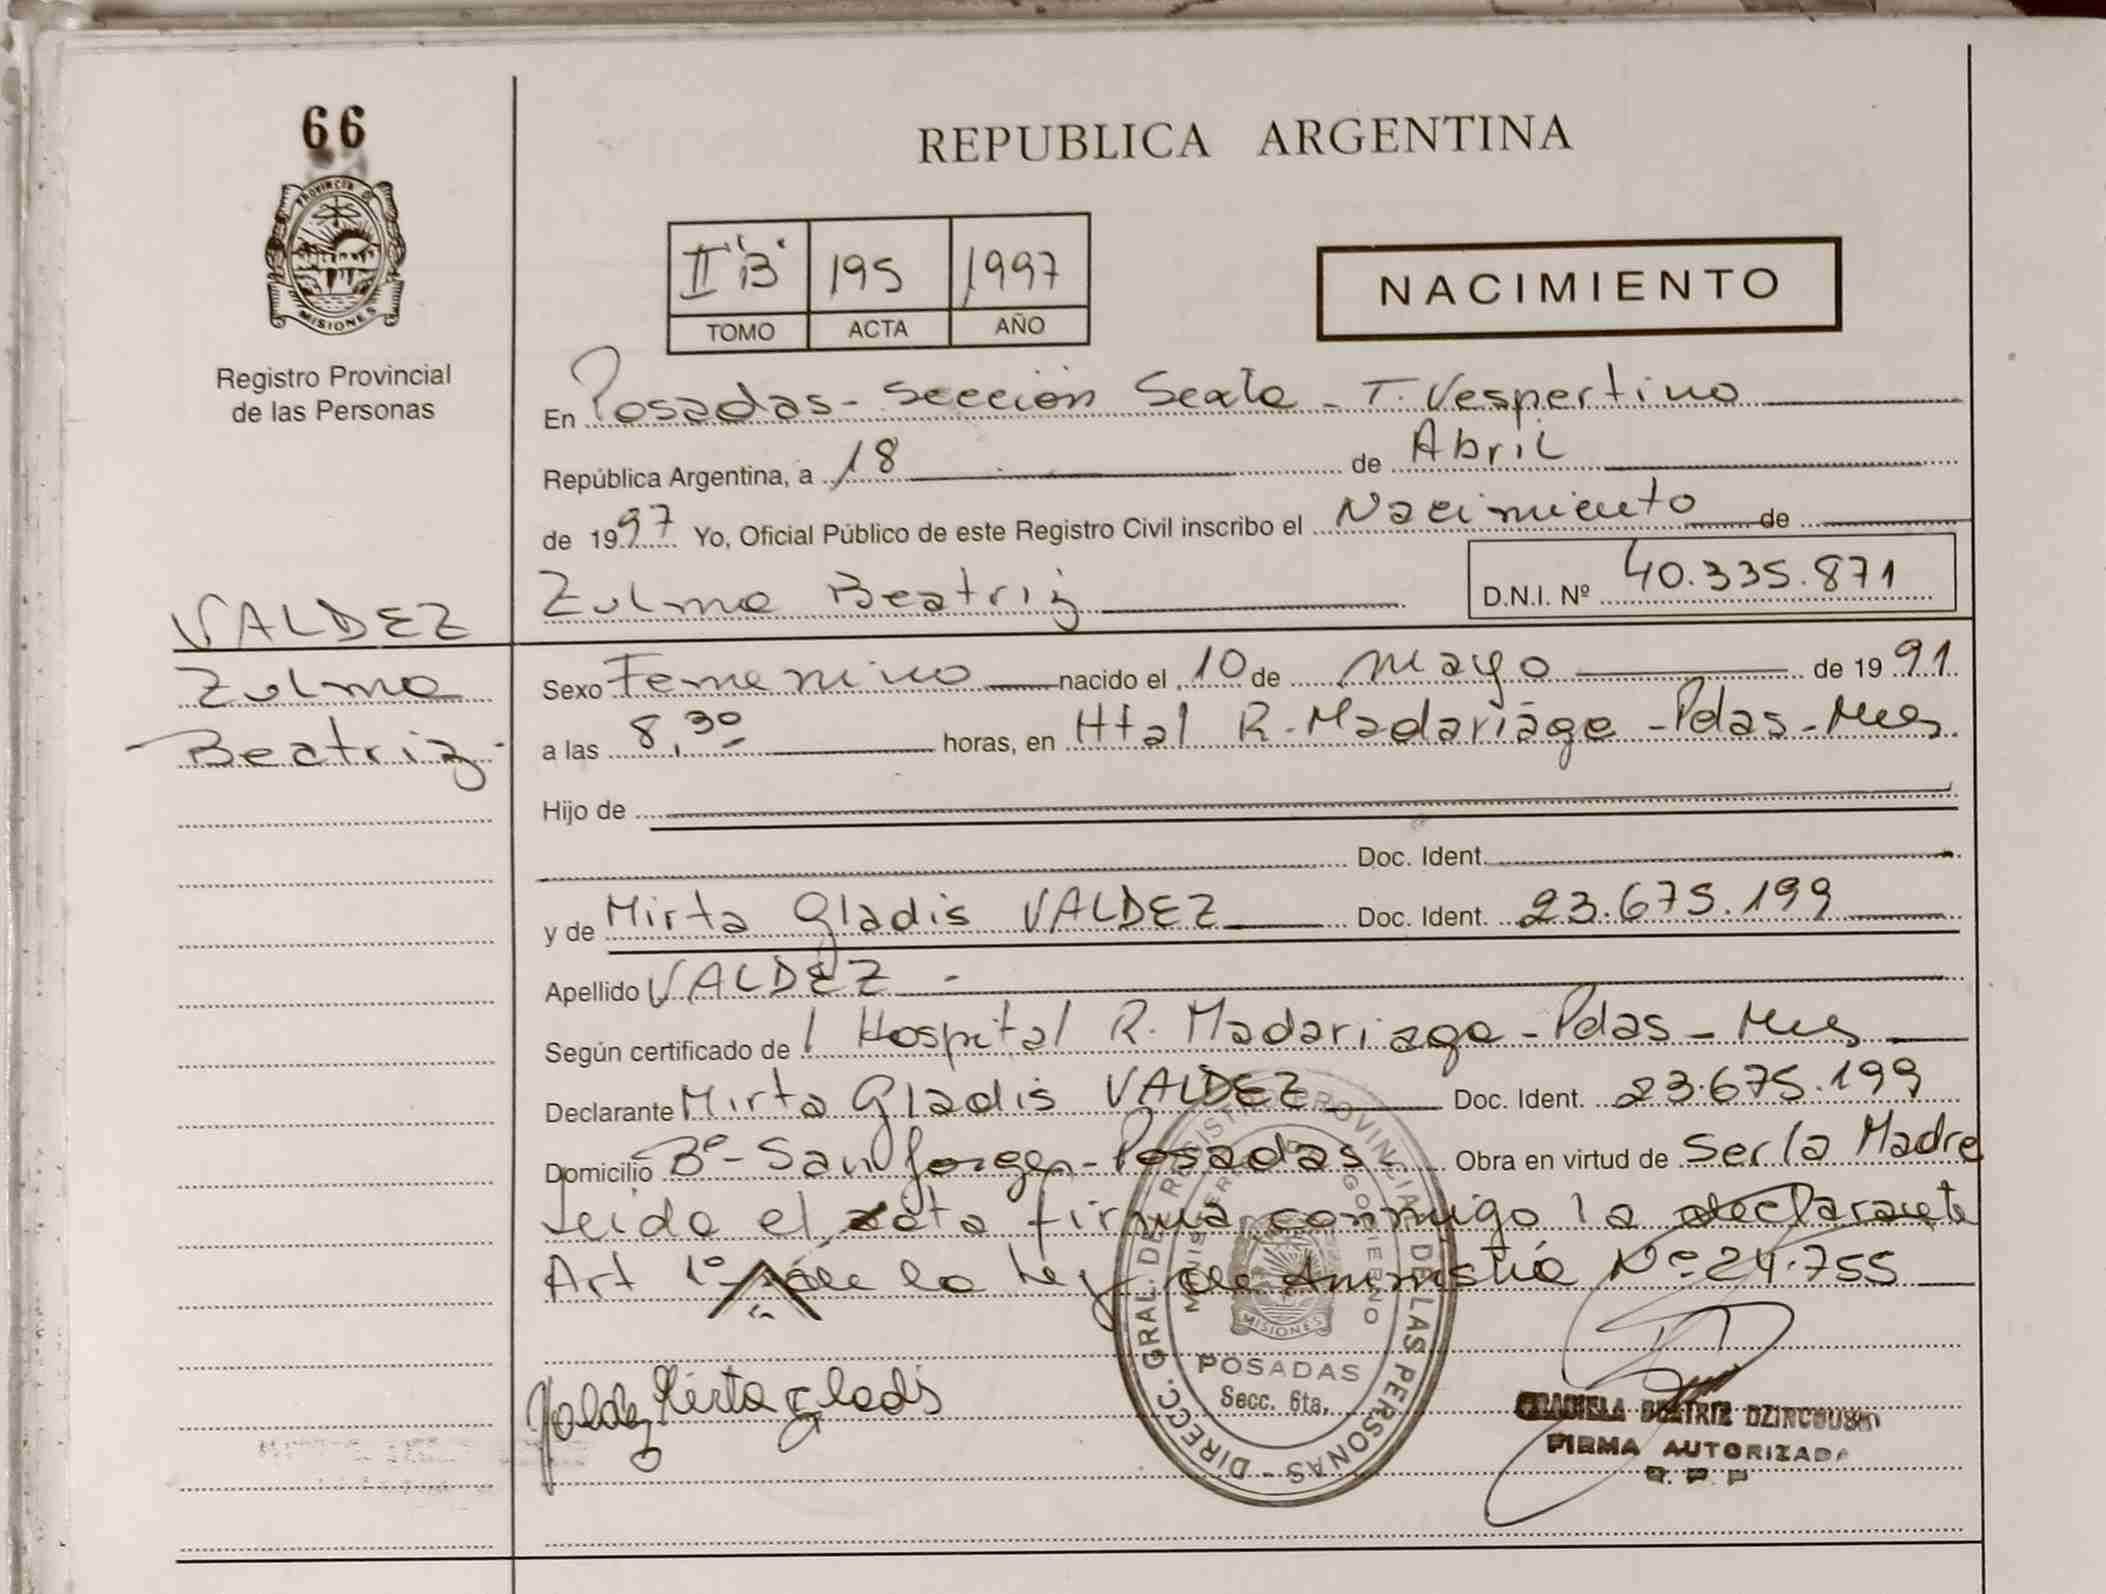 66
PROVINCIA DE
MISIONES
Registro Provincial
de las Personas
REPUBLICA ARGENTINA
II "B" 195 1997
TOMO ACTA AÑO
NACIMIENTO
En Posadas - Sección Sexta - T. Vespertino
República Argentina, a 18 de Abril
de 1997 Yo, Oficial Público de este Registro Civil inscribo el Nacimiento de
Zulma Beatriz D.N.I. Nº 40.335.871
VALDEZ
Zulma
Beatriz.-
Sexo Femenino nacido el 10 de mayo de 1991
a las 8,30 horas, en Htal R. Madariaga - Pdas - Mnes
Hijo de
Doc. Ident.
y de Mirta Gladis VALDEZ Doc. Ident. 23.675.199
Apellido VALDEZ -
Según certificado de l Hospital R. Madariaga - Pdas - Mnes
Declarante Mirta Gladis VALDEZ Doc. Ident. 23.675.199
Domicilio Bº - San Jorge - Posadas Obra en virtud de Ser la Madre
Leida el acta firma conmigo la declarante
Art 1º de la Ley de Amnistia Nº 24.755
Valdez Mirta Gladis
DIRECC. GRAL. DE REGISTRO PROVINCIAL DE LAS PERSONAS
MINISTERIO DE GOBIERNO
MISIONES
POSADAS
Secc. 6ta.
GRACIELA BEATRIZ
FIRMA AUTORIZADA
R. P. P